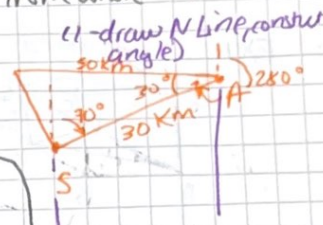 (1-draw N Line, constuct
angle)
50km
30°
280°
A
70°
30 Km
S